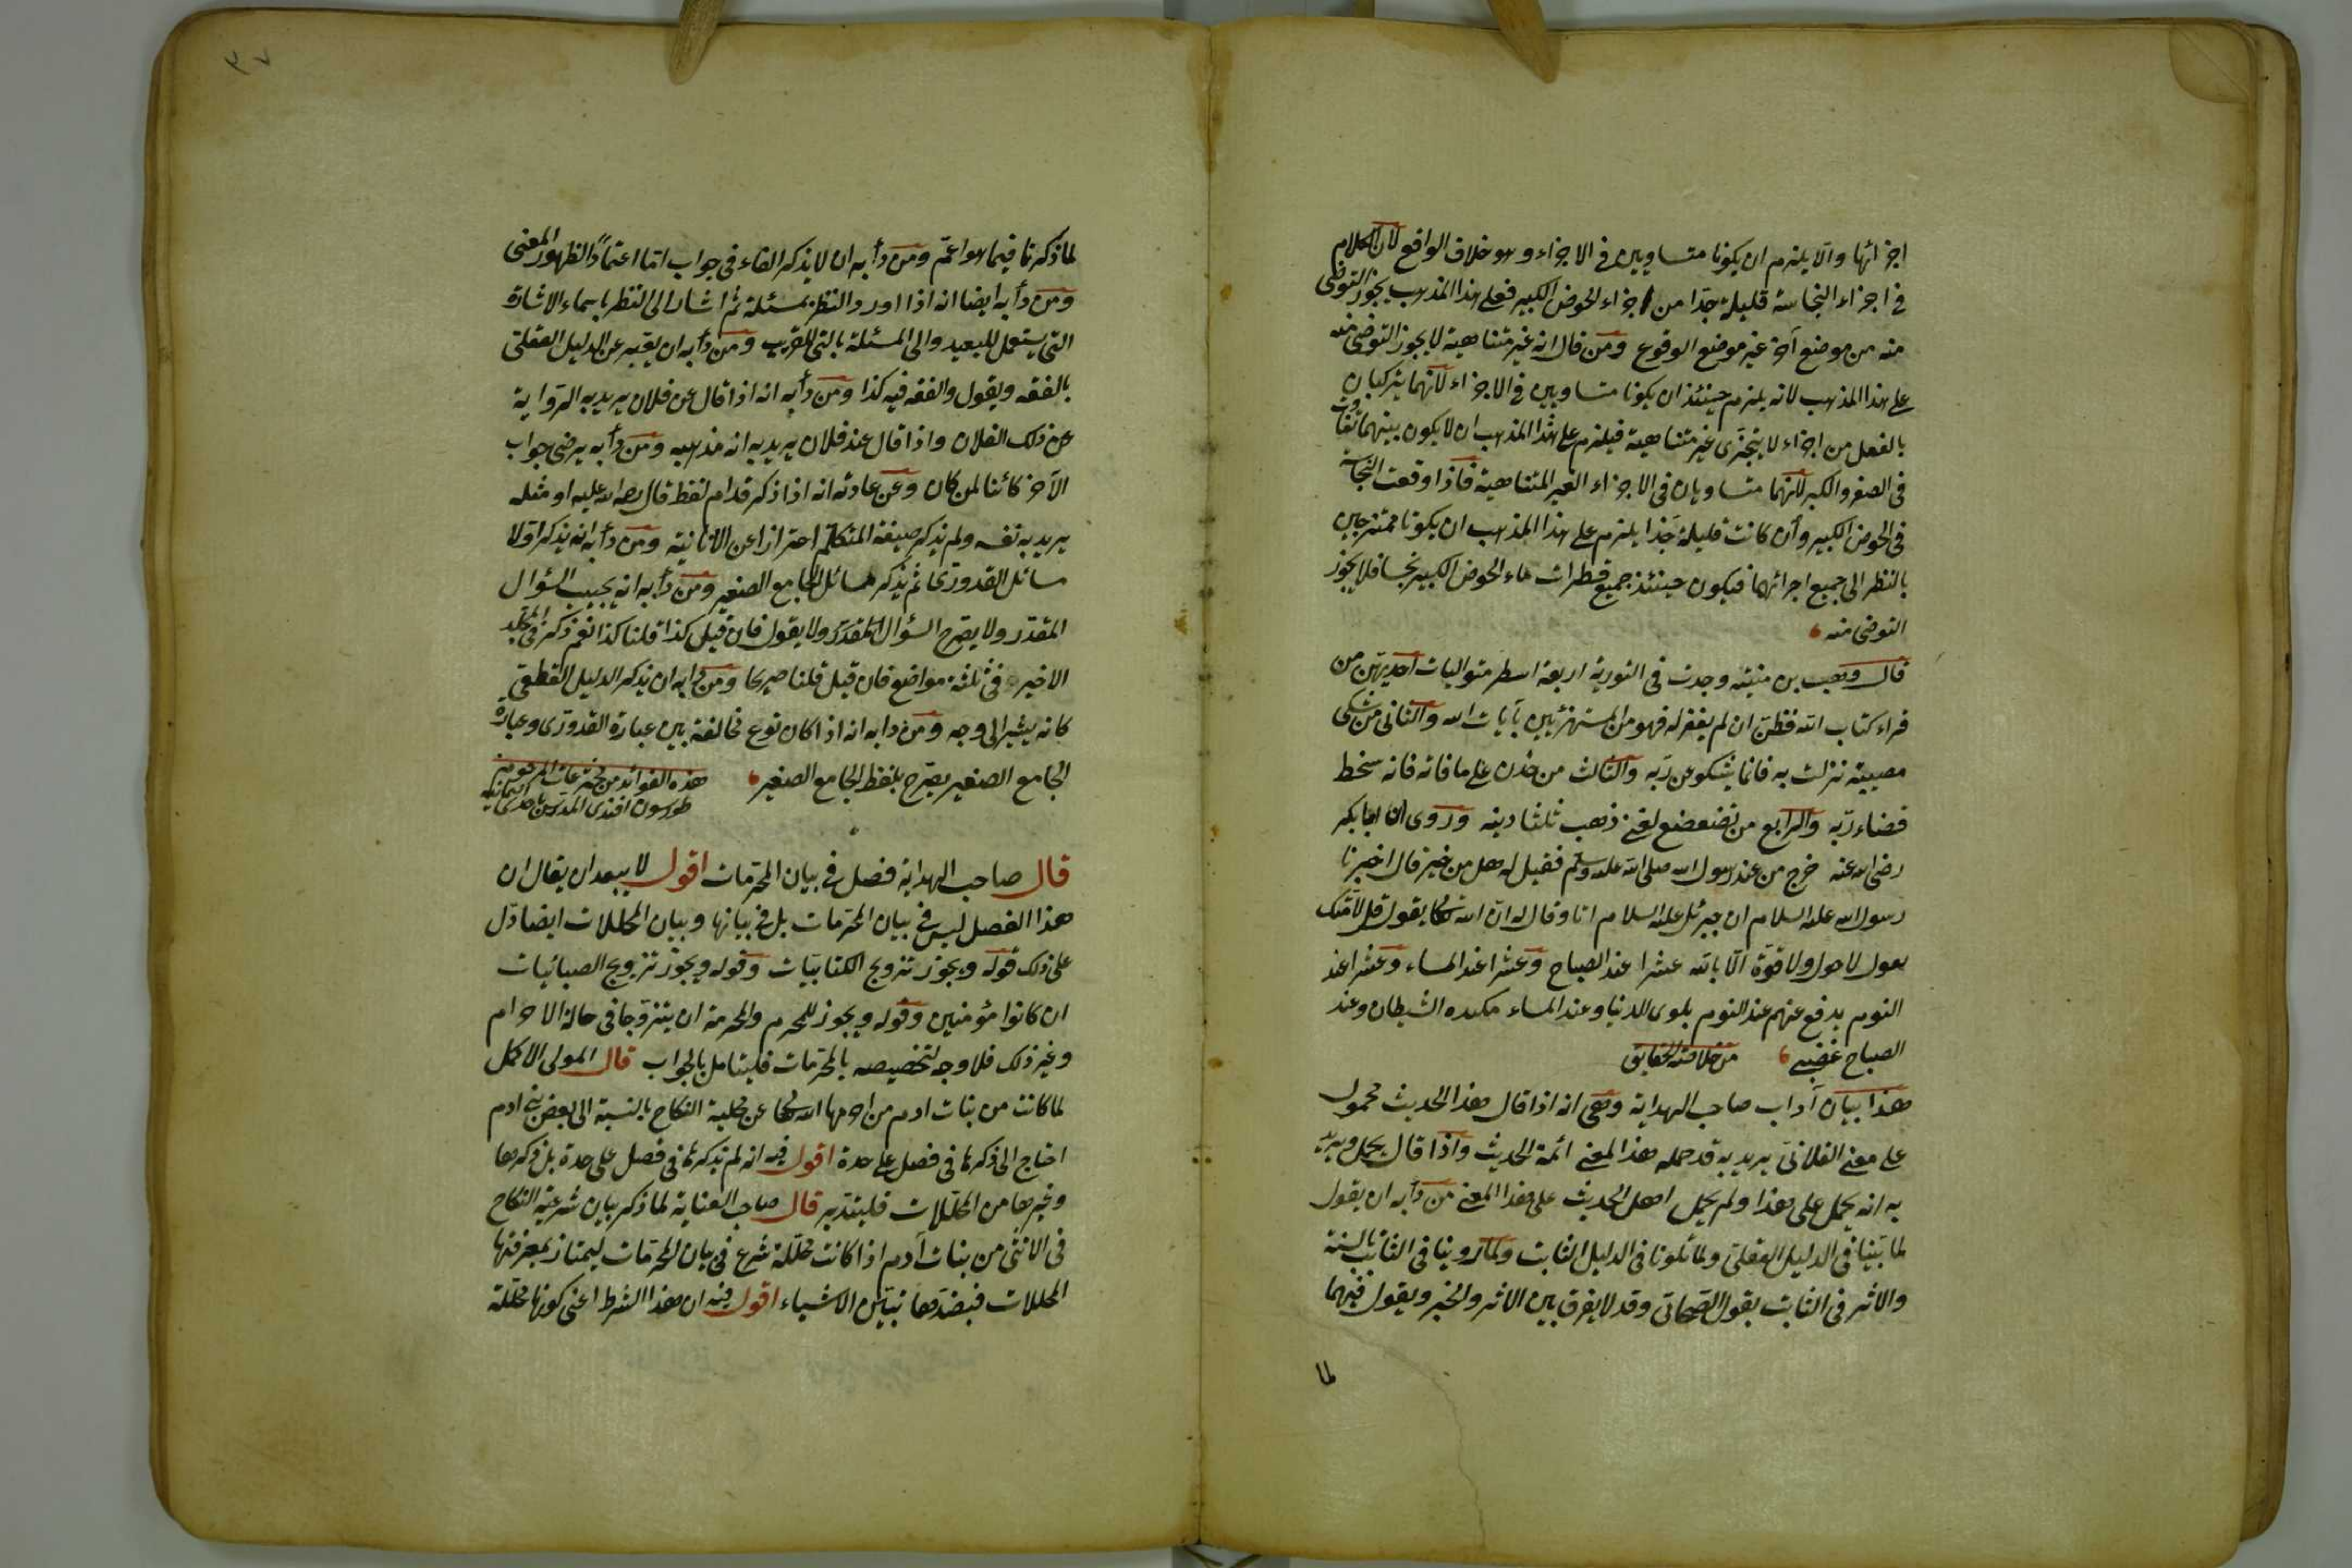 اجزائها والا يلزم ان يكونا متساويين في الاجزاء وهو خلاف الواقع لان الكلام
في اجزاء النجاسة قليلة جدا من اجزاء الحوض الكبير فعلى هذا المذهب يجوز التوضئ
منه من موضع آخر غير موضع الوقوع ومن قال انه غير متناهية لا يجوز التوضئ منه
على هذا المذهب لانه يلزم حينئذ ان يكونا متساويين في الاجزاء لانهما يتركبان
بالفعل من اجزاء لا يتجزى غير متناهية فيلزم على هذا المذهب ان لا يكون بينهما تفاوت
في الصغر والكبر لانهما متساويان في الاجزاء الغير المتناهية فاذا وقعت النجاسة
في الحوض الكبير وأن كانت قليلة جدا يلزم على هذا المذهب ان يكونا ممتزجين
بالنظر الى جميع اجزائهما فيكون حينئذ جميع قطرات ماء الحوض الكبير نجسا فلا يجوز
التوضئ منه
قال وهب بن منبه وجدت في التورية اربعة اسطر متواليات احديهن من
قراء كتاب الله فظن ان لم يغفر له فهو من المستهزئين بآيات الله والثاني من شكى
مصيبة نزلت به فانما يشكو عن ربه والثالث من حزن على ما فاته فانه سخط
قضاء ربه والرابع من تضعضع لغني ذهب ثلثا دينه وروى ان ابا بكر
رضى الله عنه خرج من عند رسول الله صلى الله عليه وسلم فقيل له هل من خير قال اخبرنا
رسول الله عليه السلام ان جبرئل عليه السلام اتا وقال له ان الله تعالى يقول قل لامتك
يقول لا حول ولا قوة الا بالله عشرا عند الصباح وعشرا عند المساء وعشرا عند
النوم يدفع عنهم عند النوم بلوى الدنيا وعند المساء مكيده الشيطان وعند
الصباح غضبى من خلاصة الحقايق
هذا بيان آداب صاحب الهداية وهى انه اذا قال هذا الحديث محمول
على معنى الفلانى يريد به قد حمله هذا المعنى ائمة الحديث واذا قال يحمل ويريد
به انه يحمل على هذا ولم يحمل اهل الحديث على هذا المعنى من دأبه ان يقول
لما بينا في الدليل العقلى ولما تلونا في الدليل الثابت ولما روينا في الثابت بالسنة
والاثر في الثابت بقول الصحابى وقد لا يفرق بين الاثر والخبر ويقول فيهما
لما
٣٧
لما ذكرنا فيما هو اعم ومن دأبه ان لا يذكر الفاء في جواب اما اعتمادا لظهور المعنى
ومن دأبه ايضا انه اذا اورد النظر بمسئلة ثم اشار الى النظر باسماء الاشارة
التى يستعمل للبعيد والى المسئلة بالتى للقريب ومن دأبه ان يعبر عن الدليل العقلى
بالفقه ويقول والفقه فيه كذا ومن دأبه انه اذا قال عن فلان يريد به الرواية
عن ذلك الفلان واذا قال عند فلان يريد به انه مذهبه ومن دأبه يرضى جواب
الآخر كائنا لمن كان وعن عادته انه اذا ذكر قدام لفظ قال رضى الله عليه او مثله
يريد به نفسه ولم يذكر صيغة المتكلم احترازا عن الانانية ومن دأبه انه يذكر اولا
مسائل القدورى ثم يذكر مسائل الجامع الصغير ومن دأبه انه يجيب السؤال
المقدر ولا يصرح السؤال المقدر ولا يقول فان قيل كذا قلنا كذا نعم ذكر في المجلد
الاخير في ثلثة مواضع فان قيل قلنا صريحا ومن دأبه ان يذكر الدليل القطعى
كانه يشير الى وجه ومن دأبه انه اذا كان نوع مخالفة بين عبارة القدورى وعبارة
الجامع الصغير يصرح بلفظ الجامع الصغير
هذه الفوائد من مخترعات المرحوم
طورسون افندى المدرس باحدى الثمانيه
قال صاحب الهداية فصل في بيان المحرمات اقول لا يبعد ان يقال ان
هذا الفصل ليس في بيان المحرمات بل في بيانها وبيان المحللات ايضا دل
على ذلك قوله ويجوز تزويج الكتابيات وقوله ويجوز تزويج الصبائيات
ان كانوا مؤمنين وقوله ويجوز للمحرم والمحرمة ان يتزوجا في حالة الاحرام
وغير ذلك فلا وجه لتخصيصه بالمحرمات فليتامل بالجواب قال المولى الاكمل
لما كانت من بنات ادم من اخرجها الله تعالى عن محلية النكاح بالنسبة الى بعض بنى ادم
احتاج الى ذكرها في فصل على حدة اقول فيه انه لم يذكرها في فصل على حدة بل ذكرها
وغيرها من المحللات فليتدبر قال صاحب العناية لما ذكر بيان شرعية النكاح
في الانثى من بنات آدم اذا كانت محللة شرع في بيان المحرمات ليمتاز بمعرفتها
المحللات فبضدها تتبين الاشياء اقول فيه ان هذا الشرط اعنى كونها محللة